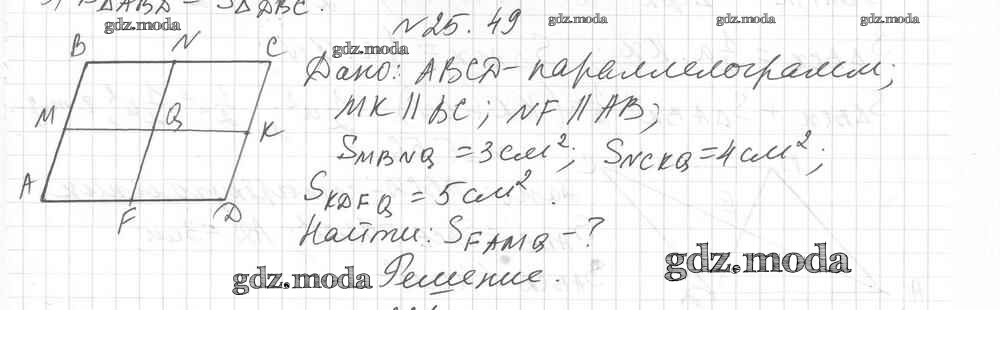 S△ABD = S△DBC.
N25.49
gdz.moda
gdz.moda
gdz.moda
gdz.moda
gdz.moda
B N C
M Q K
A F D
Дано: ABCD-параллелограмм;
MK || BC; NF || AB;
SMBNQ = 3см²; SNCKQ = 4см²;
SKDFQ = 5см².
Найти: SFAMQ - ?
Решение.
gdz.moda
gdz.moda